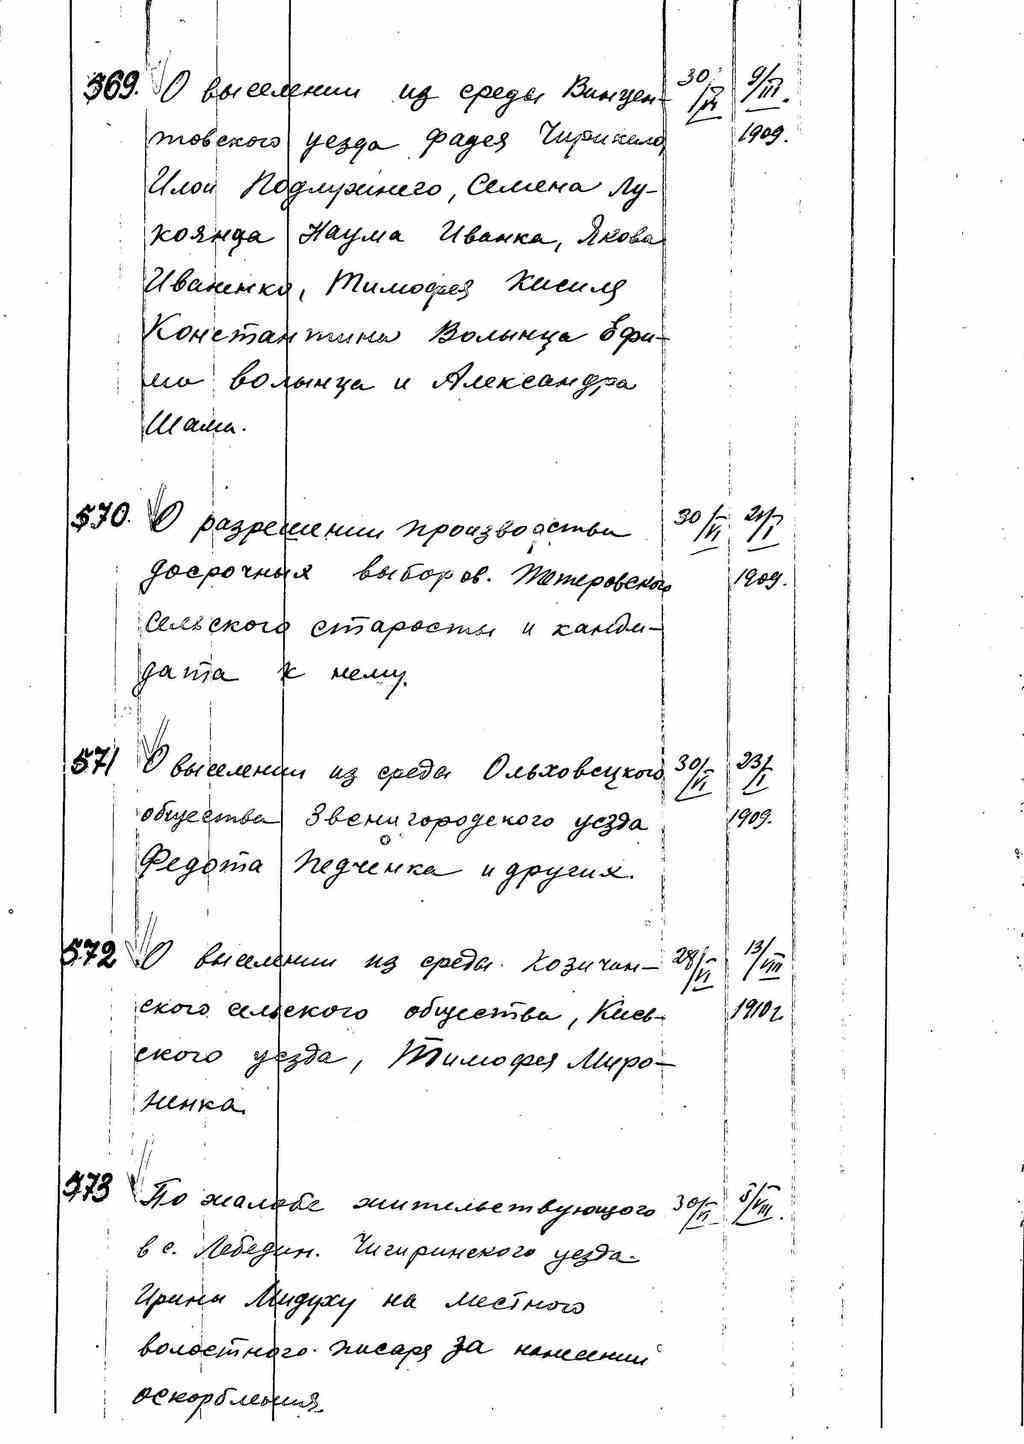 569. О выселении из среды Винцен- 30/VI 9/III.
товского уезда Фадея Чирикало, 1909.
Илои Подлужнего, Семена Лу-
коянда Наума Иванка, Якова
Иваненко, Тимофея Кисиля
Константина Волынца Ефи-
ма Волынца и Александра
Шама.
570. О разрешении производства 30/VI 21/I
досрочных выборов. Тетеровского 1909.
сельского старосты и канди-
дата к нему.
571 О выселении из среды Ольховецкого 30/VI 23/I
общества Звенигородского уезда 1909.
Федота Педченка и других.
572 О выселении из среды Козичан- 28/VI 13/VIII
ского сельского общества, Киев- 1910 г.
ского уезда, Тимофея Миро-
ненка.
573 По жалобе жительствующего 30/VI 5/VIII.
в с. Лебедин. Чигиринского уезда
Ирины Мидуху на местного
волостного писаря за нанесении
оскорбления.